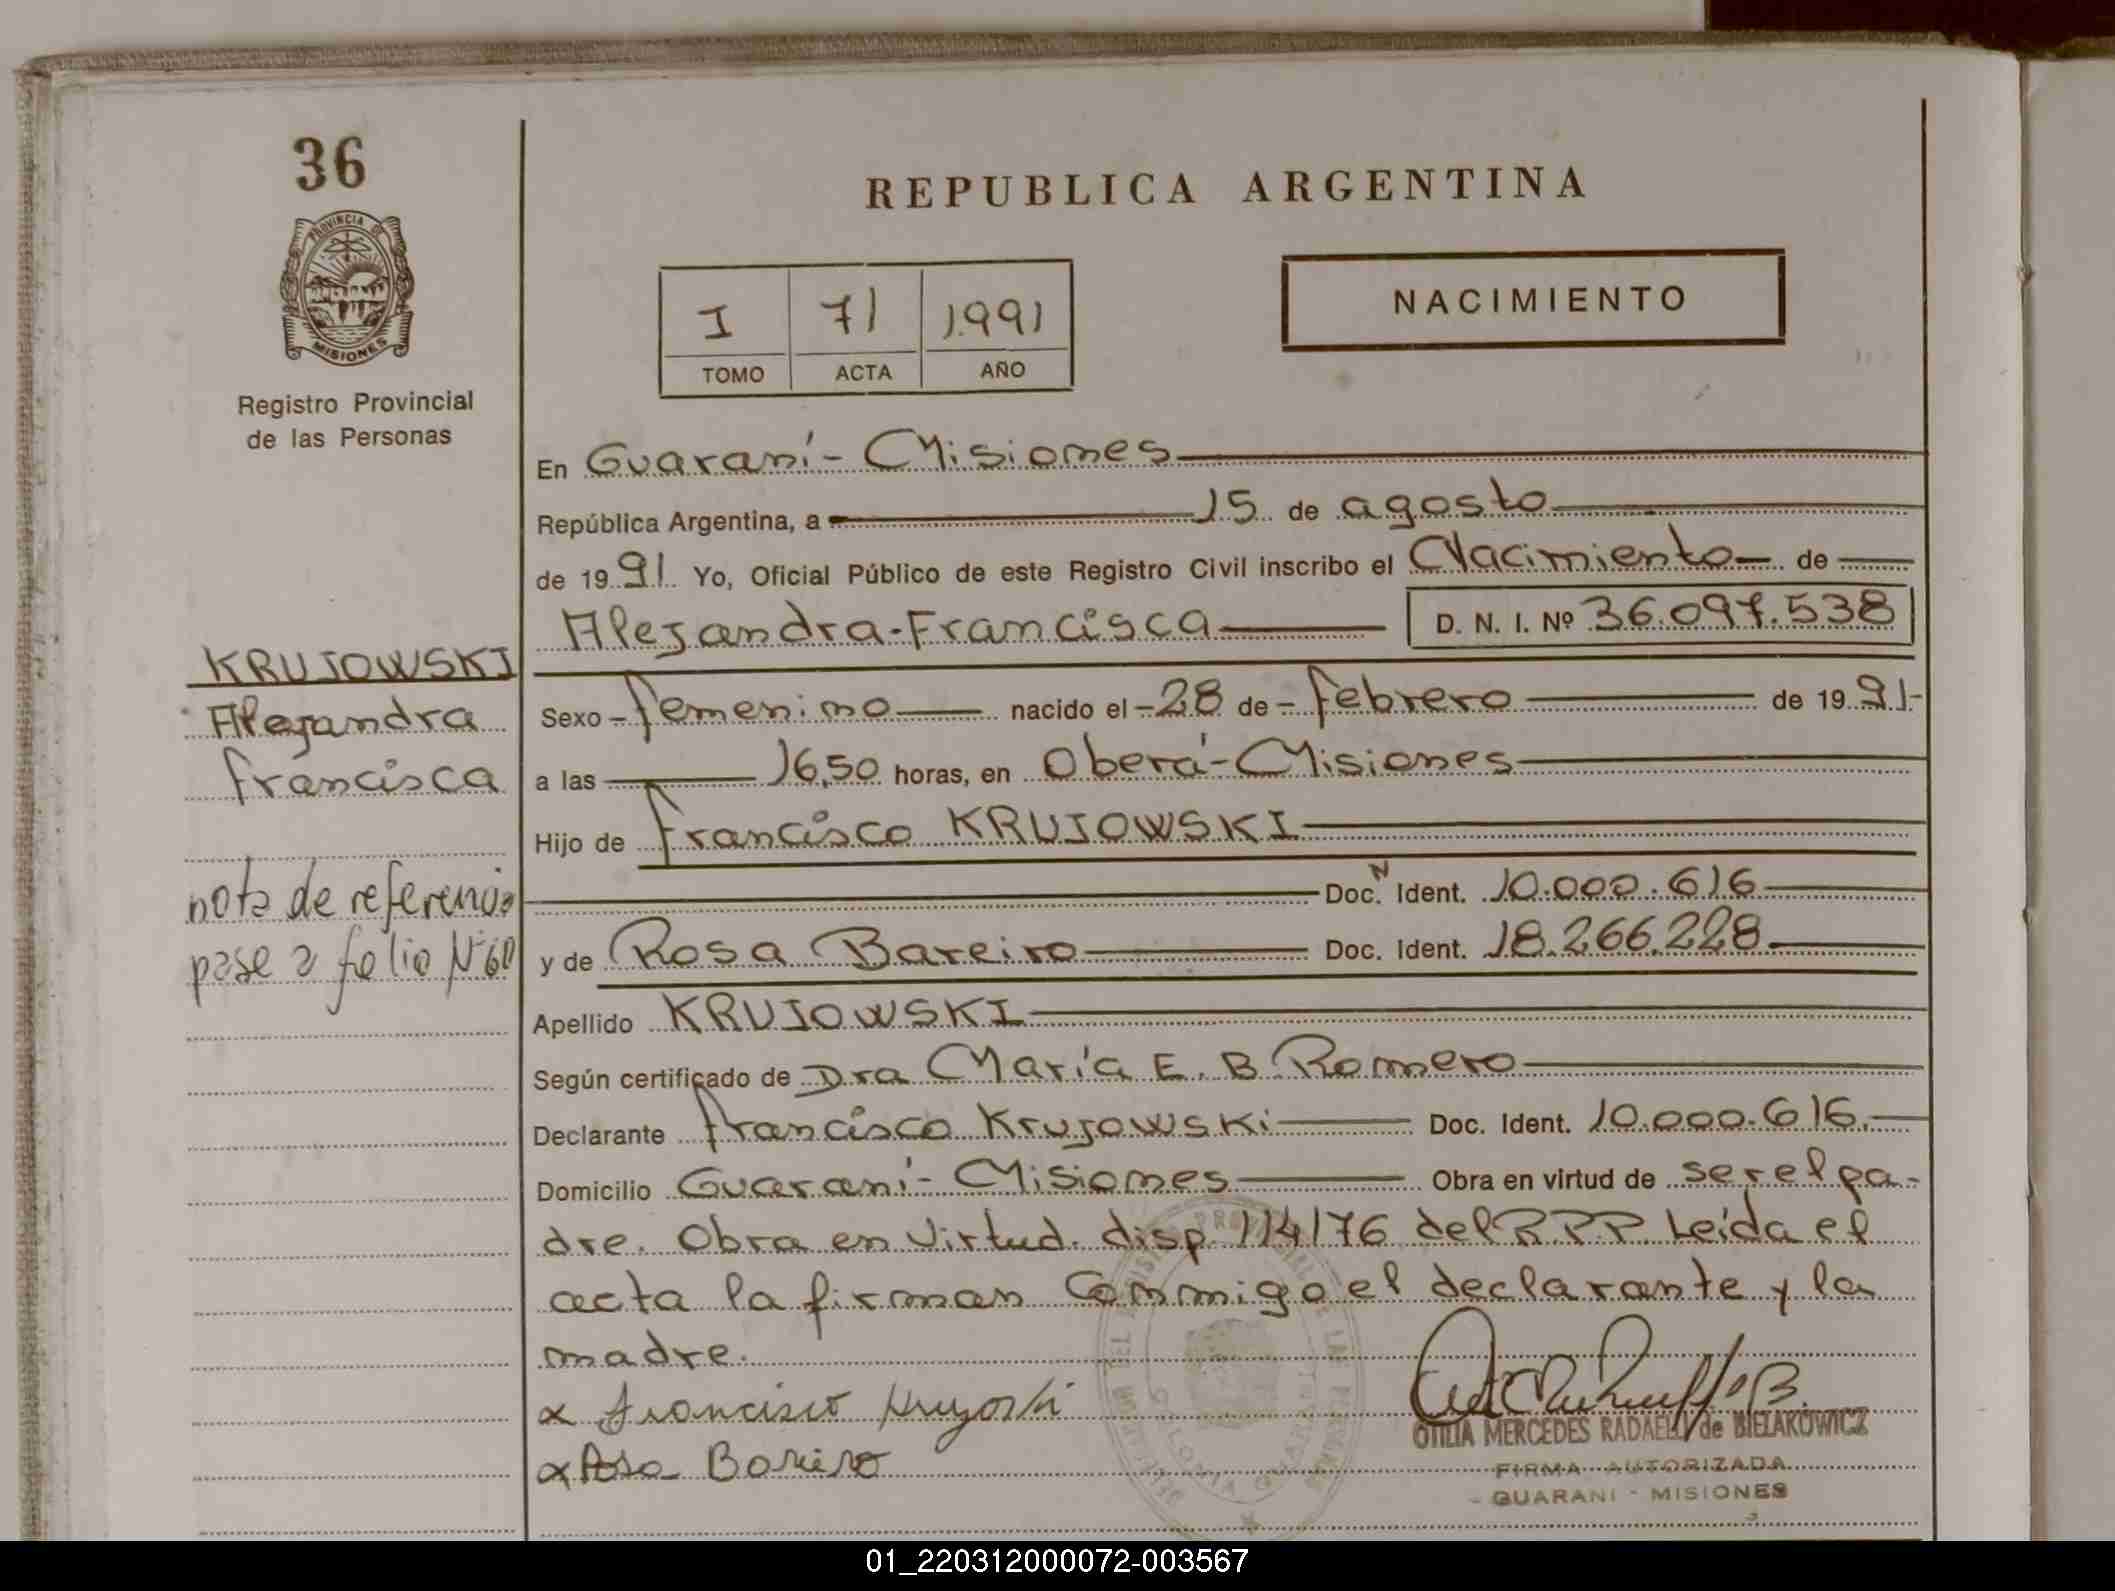 36
PROVINCIA DE
MISIONES
Registro Provincial
de las Personas
REPUBLICA ARGENTINA
I 71 1991
TOMO ACTA AÑO
NACIMIENTO
En Guaraní - Misiones
República Argentina, a 15 de agosto
de 1991 Yo, Oficial Público de este Registro Civil inscribo el Nacimiento de
Alejandra-Francisca D. N. I. Nº 36.097.538
KRUJOWSKI
Alejandra
Francisca
Sexo - femenino nacido el - 28 de - febrero de 1991-
a las 16,50 horas, en Oberá - Misiones
Hijo de Francisco KRUJOWSKI
Doc. N Ident. 10.000.616
nota de referencia
pase a folio Nº 60
y de Rosa Bareiro Doc. Ident. 18.266.228
Apellido KRUJOWSKI
Según certificado de Dra María E. B. Romero
Declarante Francisco Krujowski Doc. Ident. 10.000.616.
Domicilio Guaraní - Misiones Obra en virtud de ser el pa-
dre. Obra en virtud. disp. 114/76 del R.P.P. Leída el
acta la firman conmigo el declarante y la
madre.
x Francisco Krujoski
x Rosa Bareiro
OTILIA MERCEDES RADAELLI de BIELAKOWICZ
FIRMA AUTORIZADA
- GUARANI - MISIONES
01_220312000072-003567